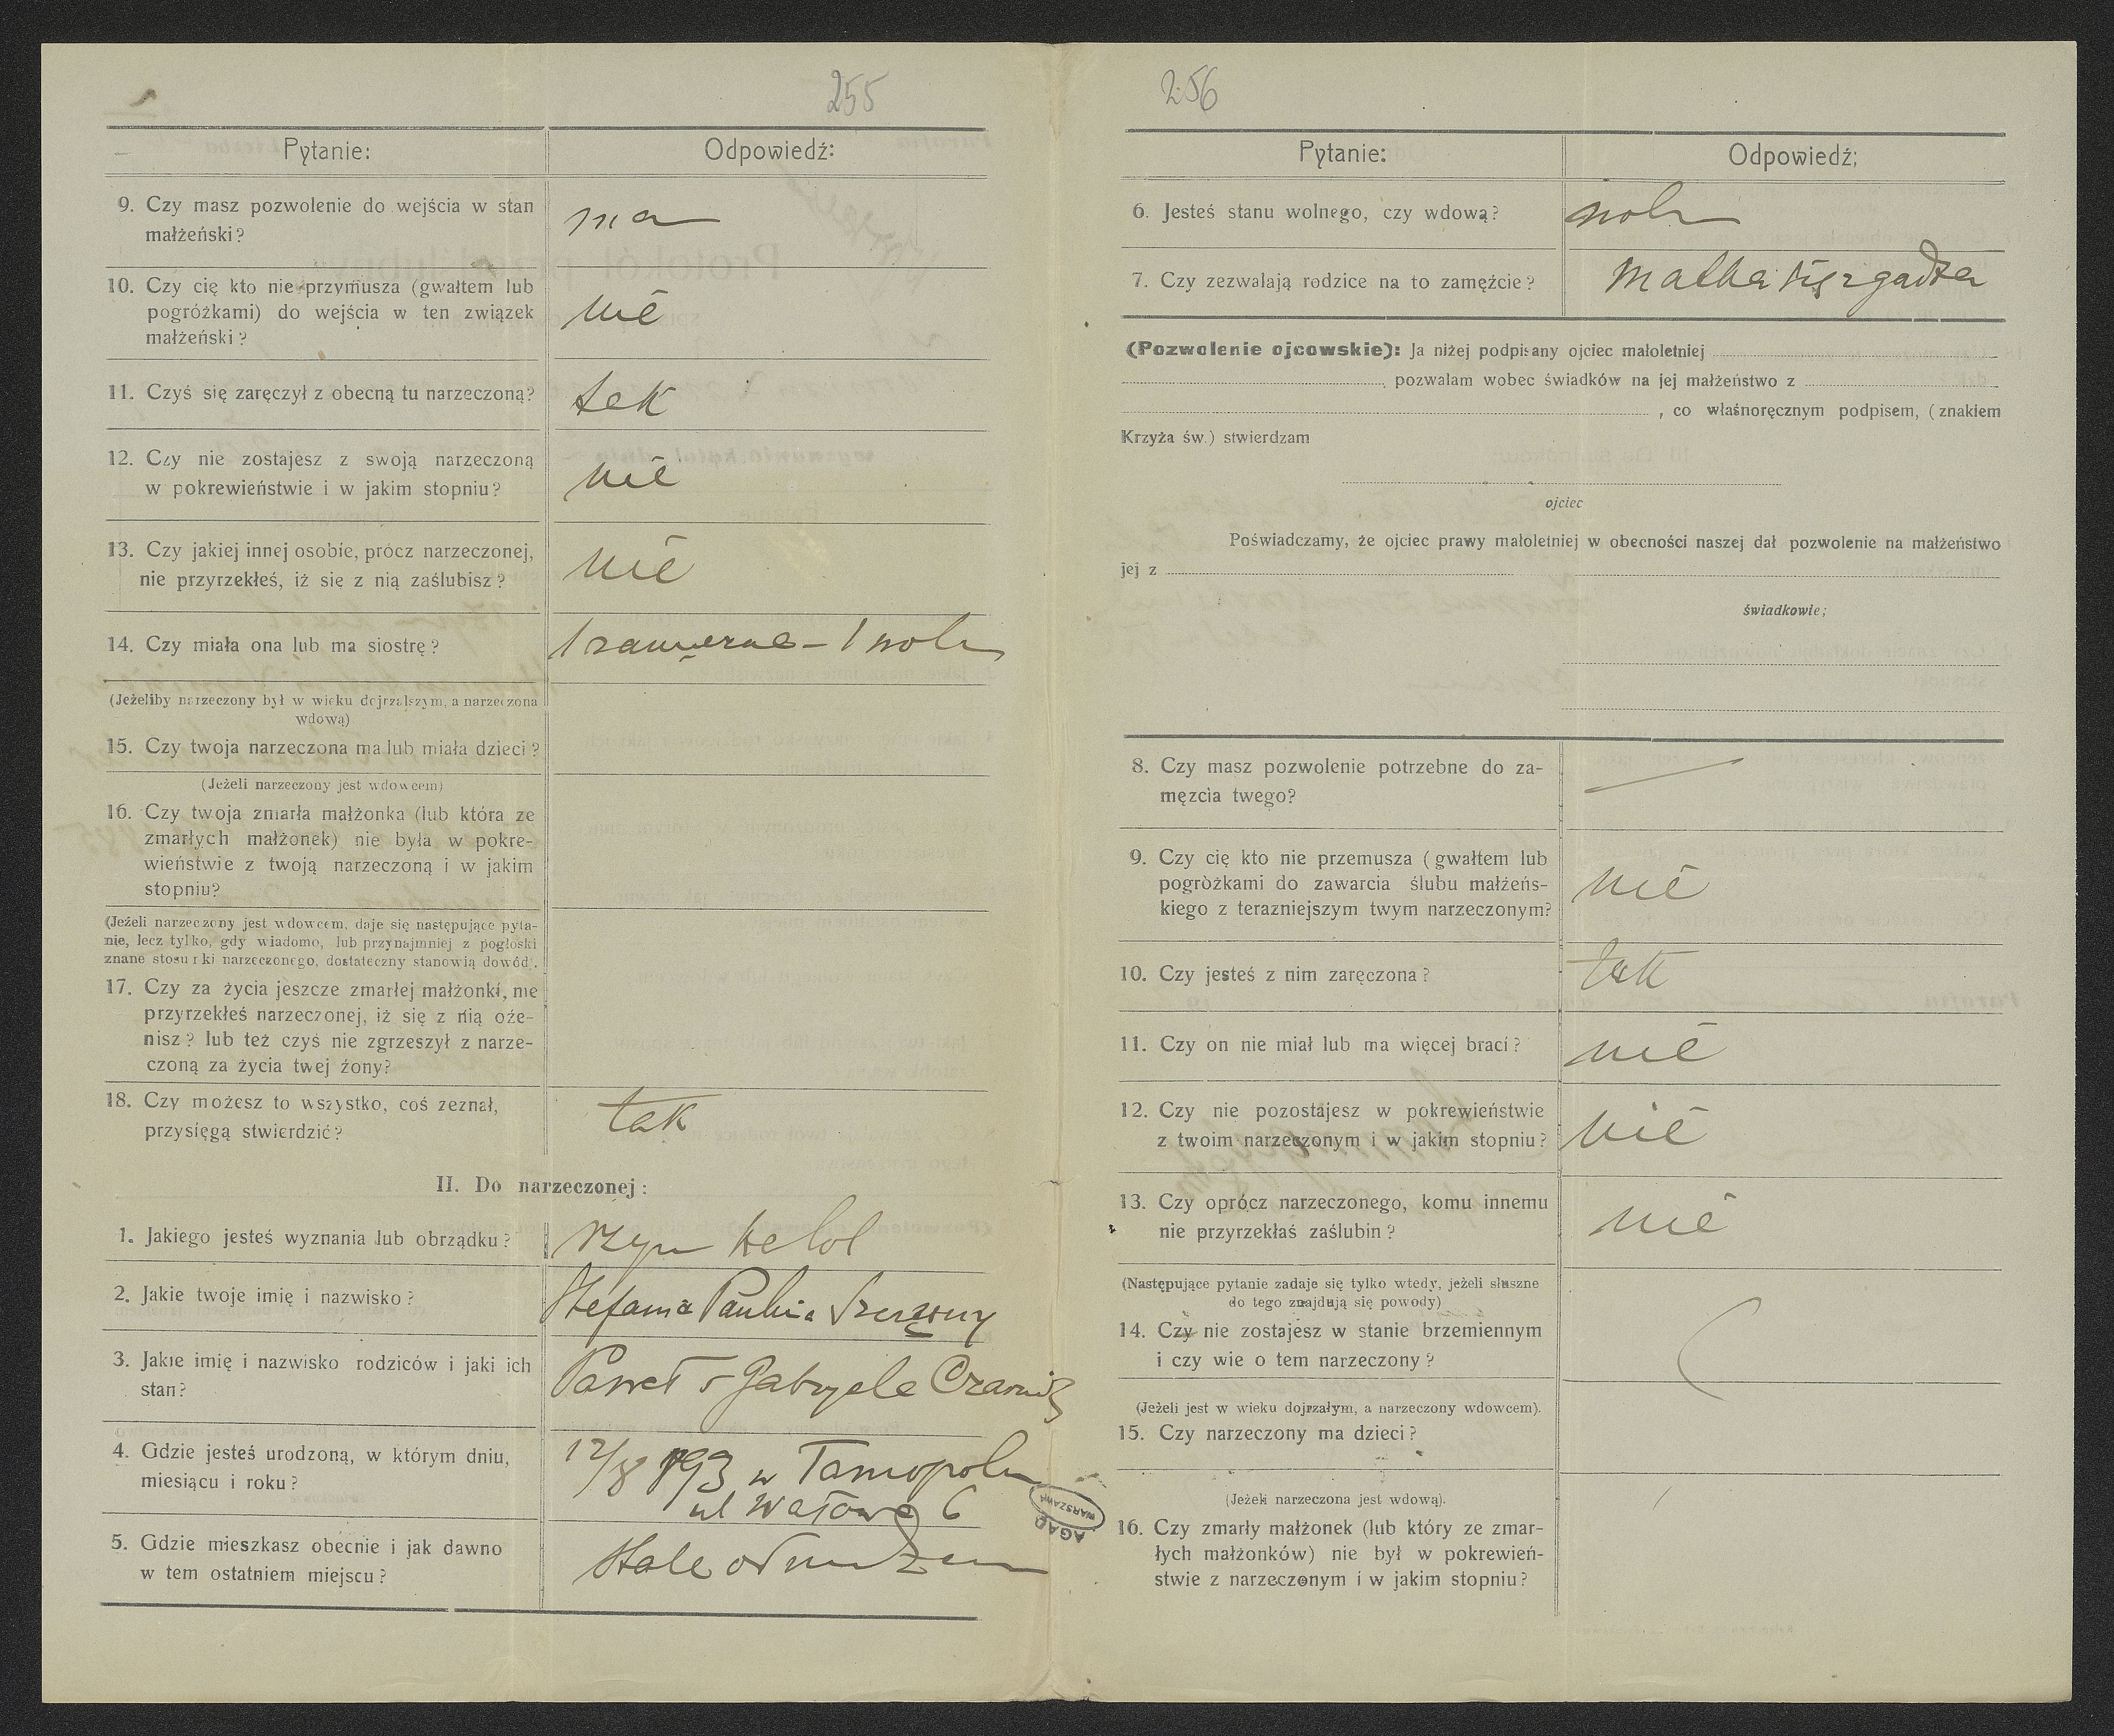 255
Pytanie:
Odpowiedź:
9. Czy masz pozwolenie do wejścia w stan
małżeński?
ma
10. Czy cię kto nie przymusza (gwałtem lub
pogróżkami) do wejścia w ten związek
małżeński?
nie
11. Czyś się zaręczył z obecną tu narzeczoną?
tak
12. Czy nie zostajesz z swoją narzeczoną
w pokrewieństwie i w jakim stopniu?
nie
13. Czy jakiej innej osobie, prócz narzeczonej,
nie przyrzekłeś, iż się z nią zaślubisz?
nie
14. Czy miała ona lub ma siostrę?
1 zamężna - 1 woln
(Jeżeliby narzeczony był w wieku dojrzalszym, a narzeczona
wdową)
15. Czy twoja narzeczona ma lub miała dzieci?
(Jeżeli narzeczony jest wdowcem)
16. Czy twoja zmarła małżonka (lub która ze
zmarłych małżonek) nie była w pokre-
wieństwie z twoją narzeczoną i w jakim
stopniu?
(Jeżeli narzeczony jest wdowcem, daje się następujące pyta-
nie, lecz tylko, gdy wiadomo, lub przynajmniej z pogłoski
znane stosunki narzeczonego, dostateczny stanowią dowód).
17. Czy za życia jeszcze zmarłej małżonki, nie
przyrzekłeś narzeczonej, iż się z nią oże-
nisz? lub też czyś nie zgrzeszył z narze-
czoną za życia twej żony?
18. Czy możesz to wszystko, coś zeznał,
przysięgą stwierdzić?
tak
II. Do narzeczonej:
1. Jakiego jesteś wyznania lub obrządku?
rzym katol
2. Jakie twoje imię i nazwisko?
Stefania Paulina
3. Jakie imię i nazwisko rodziców i jaki ich
stan?
Paweł Gabryela
4. Gdzie jesteś urodzoną, w którym dniu,
miesiącu i roku?
12/8 893 w Tarnopolu
ul Wałowa 6
5. Gdzie mieszkasz obecnie i jak dawno
w tem ostatniem miejscu?
Stale od urodzen
AGAD
WARSZAWA
256
Pytanie:
Odpowiedź;
6. Jesteś stanu wolnego, czy wdową?
woln
7. Czy zezwalają rodzice na to zamęźcie?
Matka się zgadza
(Pozwolenie ojcowskie): Ja niżej podpisany ojciec małoletniej
, pozwalam wobec świadków na jej małżeństwo z
, co własnoręcznym podpisem, (znakiem
Krzyża św.) stwierdzam
ojciec
Poświadczamy, że ojciec prawy małoletniej w obecności naszej dał pozwolenie na małżeństwo
jej z
świadkowie;
8. Czy masz pozwolenie potrzebne do za-
męzcia twego?
9. Czy cię kto nie przemusza (gwałtem lub
pogròżkami do zawarcia ślubu małżeńs-
kiego z terazniejszym twym narzeczonym?
nie
10. Czy jesteś z nim zaręczona?
tak
11. Czy on nie miał lub ma więcej braci?
nie
12. Czy nie pozostajesz w pokrewieństwie
z twoim narzeczonym i w jakim stopniu?
nie
13. Czy oprócz narzeczonego, komu innemu
nie przyrzekłaś zaślubin?
nie
(Następujące pytanie zadaje się tylko wtedy, jeżeli słuszne
do tego znajdują się powody)
14. Czy nie zostajesz w stanie brzemiennym
i czy wie o tem narzeczony?
(Jeżeli jest w wieku dojrzałym, a narzeczony wdowcem).
15. Czy narzeczony ma dzieci?
(Jeżeli narzeczona jest wdową).
16. Czy zmarły małżonek (lub który ze zmar-
łych małżonków) nie był w pokrewień-
stwie z narzeczonym i w jakim stopniu?